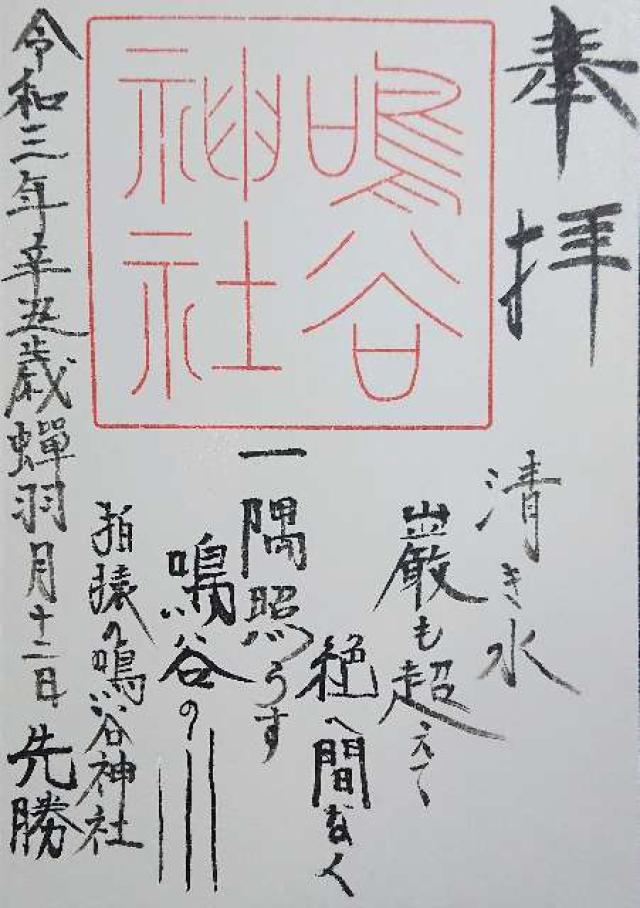 奉拝
鳴谷
神社
清き水
巌も超えて
絶へ間なく
一隅照らす
鳴谷の川
狛猿の鳴谷神社
令和三年辛丑歳蝉羽月十二日先勝